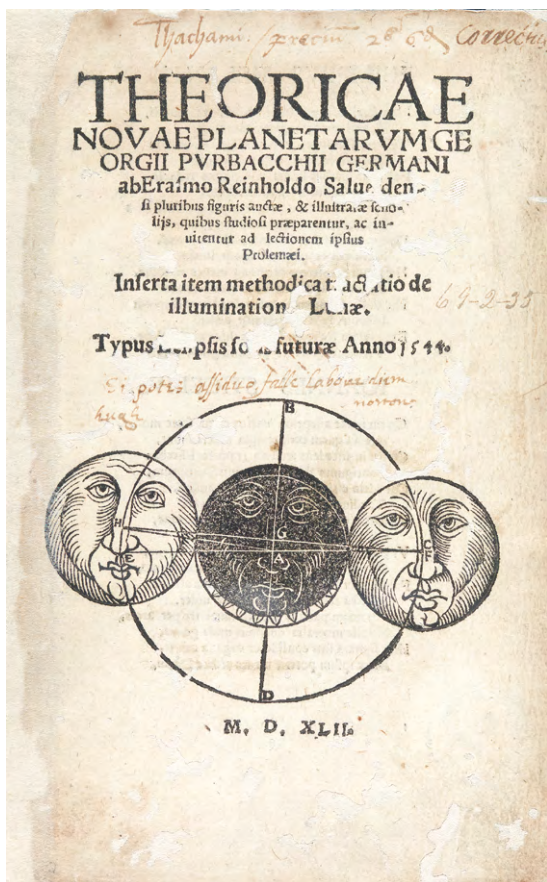 Thachami. precium 28 68 Correctus
THEORICAE
NOVAE PLANETARVM GE
ORGII PVRBACCHII GERMANI
ab Erasmo Reinholdo Salue den-
si pluribus figuris auctæ, & illustratæ scho-
lijs, quibus studiosi præparentur, ac in-
uitentur ad lectionem ipsius
Ptolemæi.
Inserta item methodica tractatio de
illuminatione Lunæ.
Typus Eclipsis solis futuræ Anno 1544.
69-2-35
assiduo falle labore diem
hugh norton
B
H E G A C F
D
M. D. XLII.